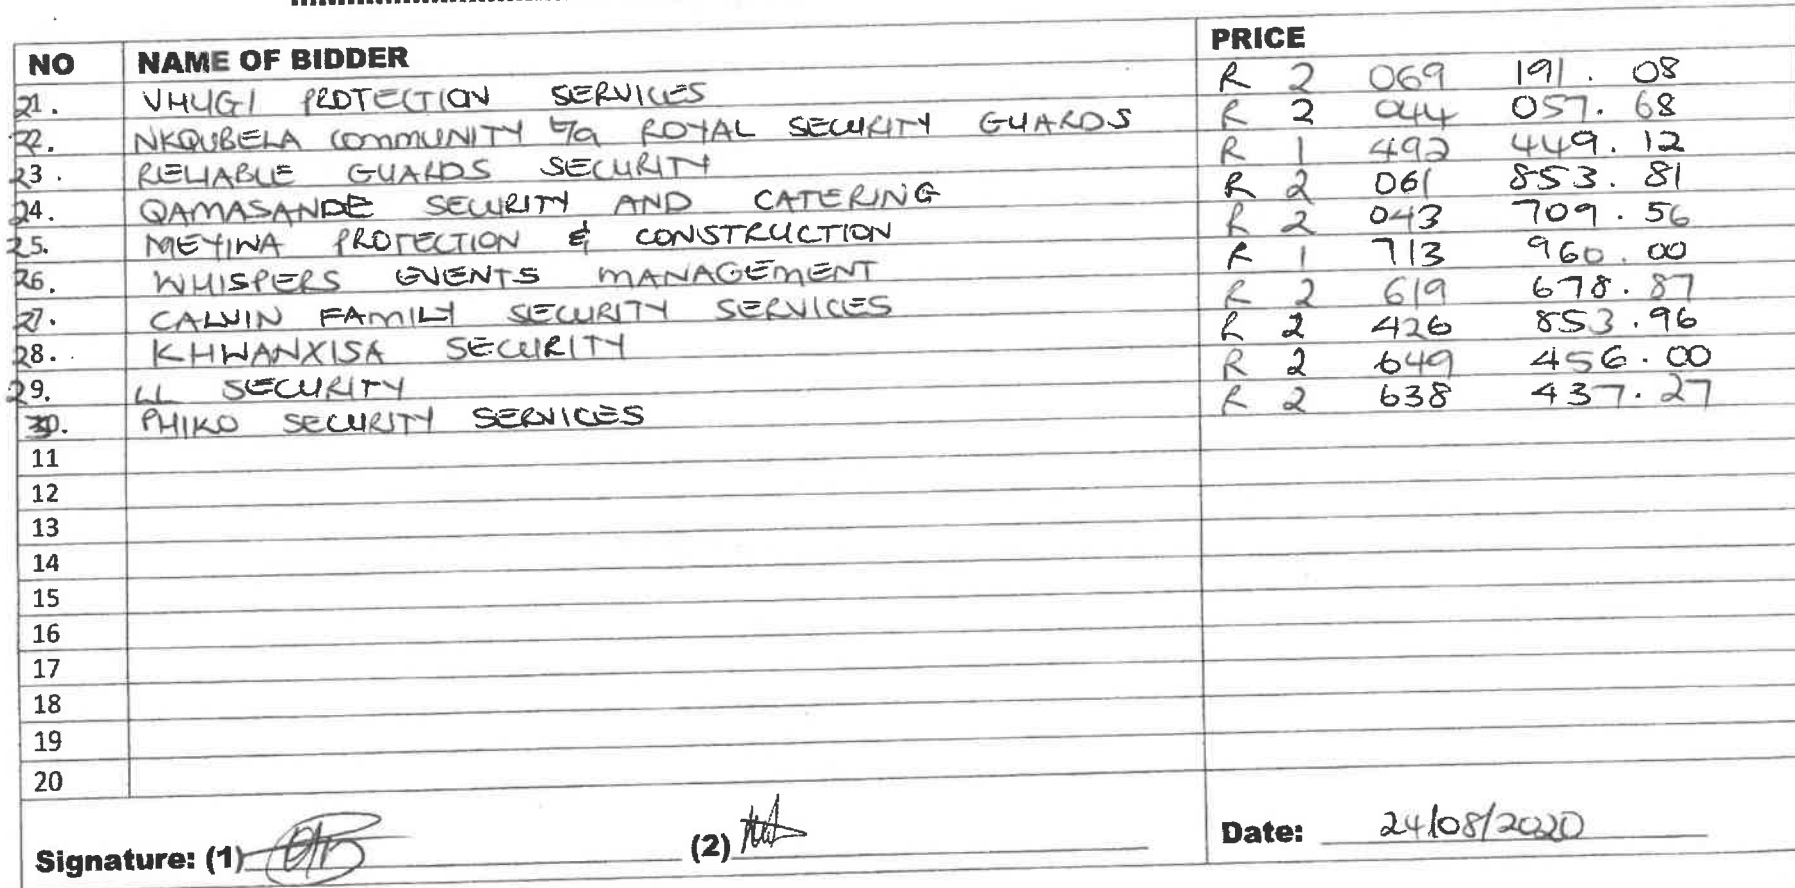 NO NAME OF BIDDER PRICE
21. VHUGI PROTECTION SERVICES R 2 069 191.08
22. NKQUBELA COMMUNITY t/a ROYAL SECURITY GUARDS R 2 044 057.68
23. RELIABLE GUARDS SECURITY R 1 492 449.12
24. QAMASANDE SECURITY AND CATERING R 2 061 853.81
25. MEYINA PROTECTION & CONSTRUCTION R 2 043 709.56
26. WHISPERS EVENTS MANAGEMENT R 1 713 960.00
27. CALVIN FAMILY SECURITY SERVICES R 2 619 678.87
28. KHWANXISA SECURITY R 2 426 853.96
29. LL SECURITY R 2 649 456.00
30. PHIKO SECURITY SERVICES R 2 638 437.27
11
12
13
14
15
16
17
18
19
20
Signature: (1) (2) Date: 24/08/2020